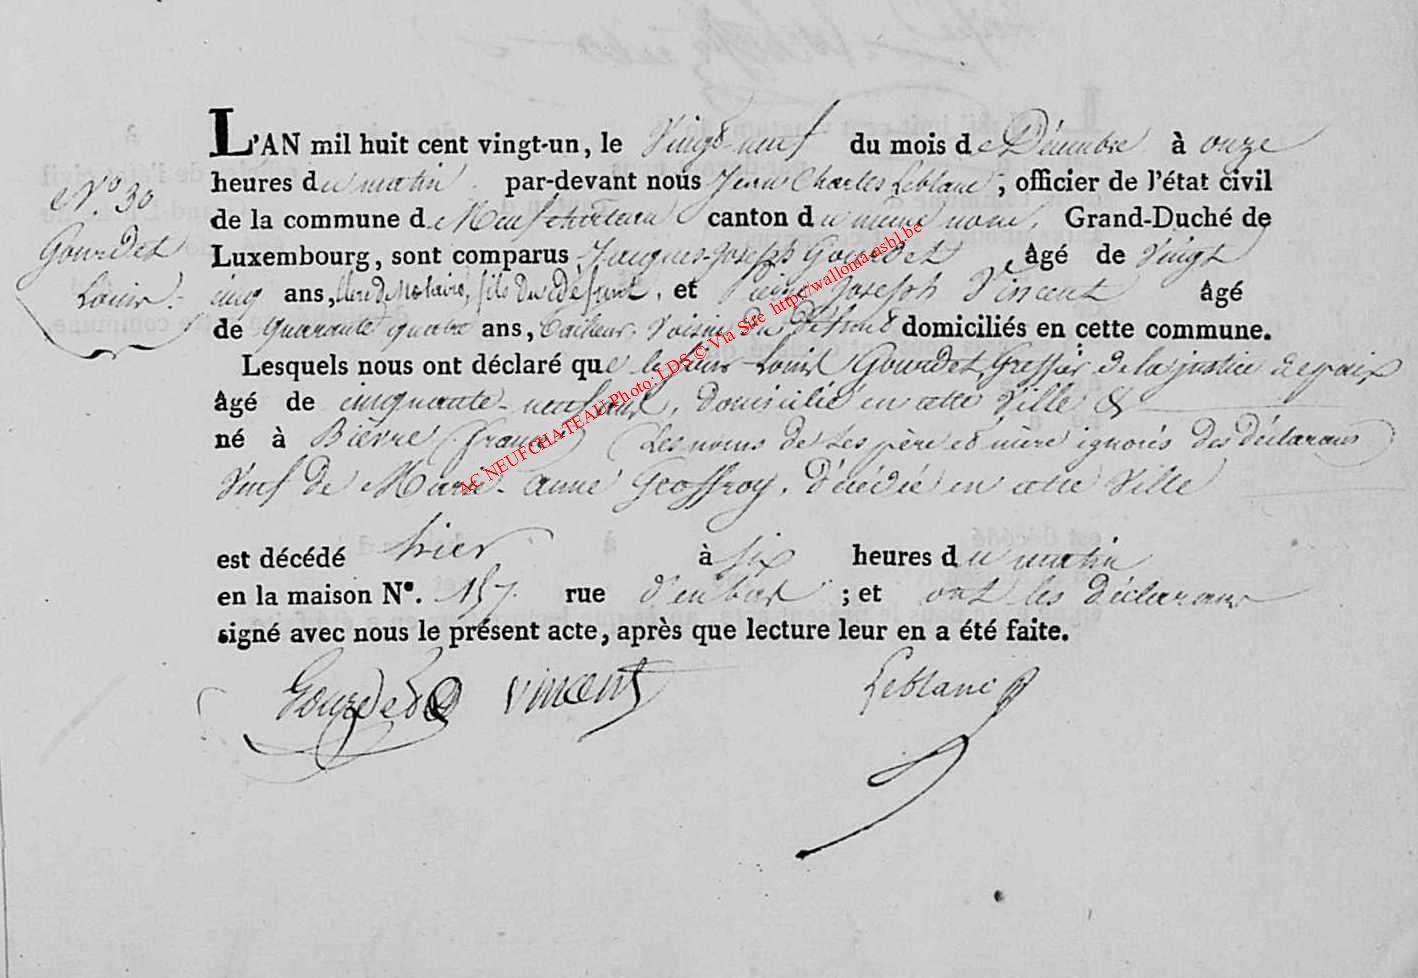 L'AN mil huit cent vingt-un, le Vingt neuf du mois de Décembre à onze
heures du matin par-devant nous Jean Charles Leblanc, officier de l'état civil
N° 30
de la commune de Neufchateau canton du même nom, Grand-Duché de
Gourdet
Luxembourg, sont comparus Jacques-Joseph Gourdet âgé de Vingt
Louis
cinq ans, Clerc de Notaire, fils du défunt, et Pierre Joseph Vincent âgé
de quarante quatre ans, Tailleur, Voisin du défunt domiciliés en cette commune.
Lesquels nous ont déclaré que le sieur Louis Gourdet Greffier de la justice de paix
âgé de cinquante-neuf ans, domicilié en cette Ville &
né à Bièvre (france) (Les noms de ses père et mère ignorés des déclarans)
Veuf de Marie-Anne Geoffroy, décédée en cette Ville
est décédé hier à six heures du matin
en la maison N°. 157 rue d'en bas ; et ont les déclarans
signé avec nous le présent acte, après que lecture leur en a été faite.
Gourdet Vincent Leblanc
AC NEUFCHATEAU Photo: LDS © Via Site http://walloma-asbl.be